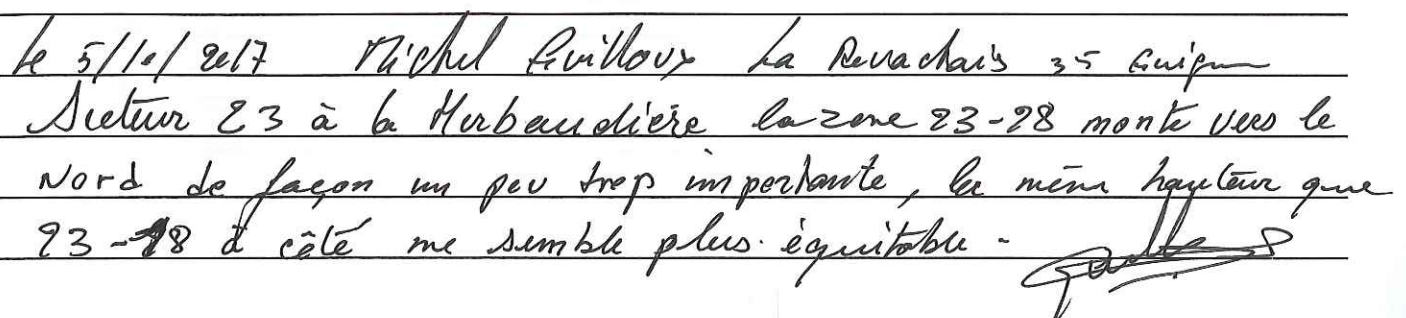 Le 5/10/2017 Michel Guilloux La Revachais 35 Guignen
Secteur 23 à la Herbaudière la zone 23-28 monte vers le
Nord de façon un peu trop importante, la même hauteur que
23-18 à côté me semble plus équitable.